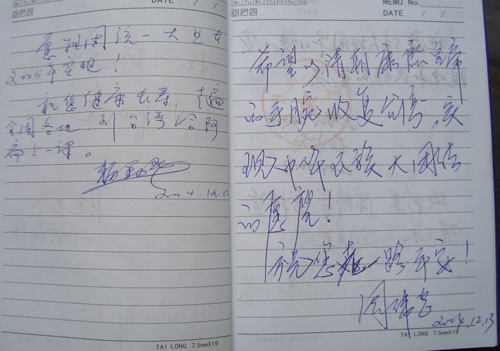 DATE / /
愿祖国统一大业在
2005年实现！
祝您健康长寿，走遍
全国各地，到台湾给阿
扁上一课。
2004.12.13
MEMO No.
DATE / /
希望以清朝康熙主席
的手腕收复台湾，实
现入中华民族大团结
的愿望！
祝您一路平安！
2004.12.13
TAI LONG 7.5mmX19
TAI LONG 7.5mmX19